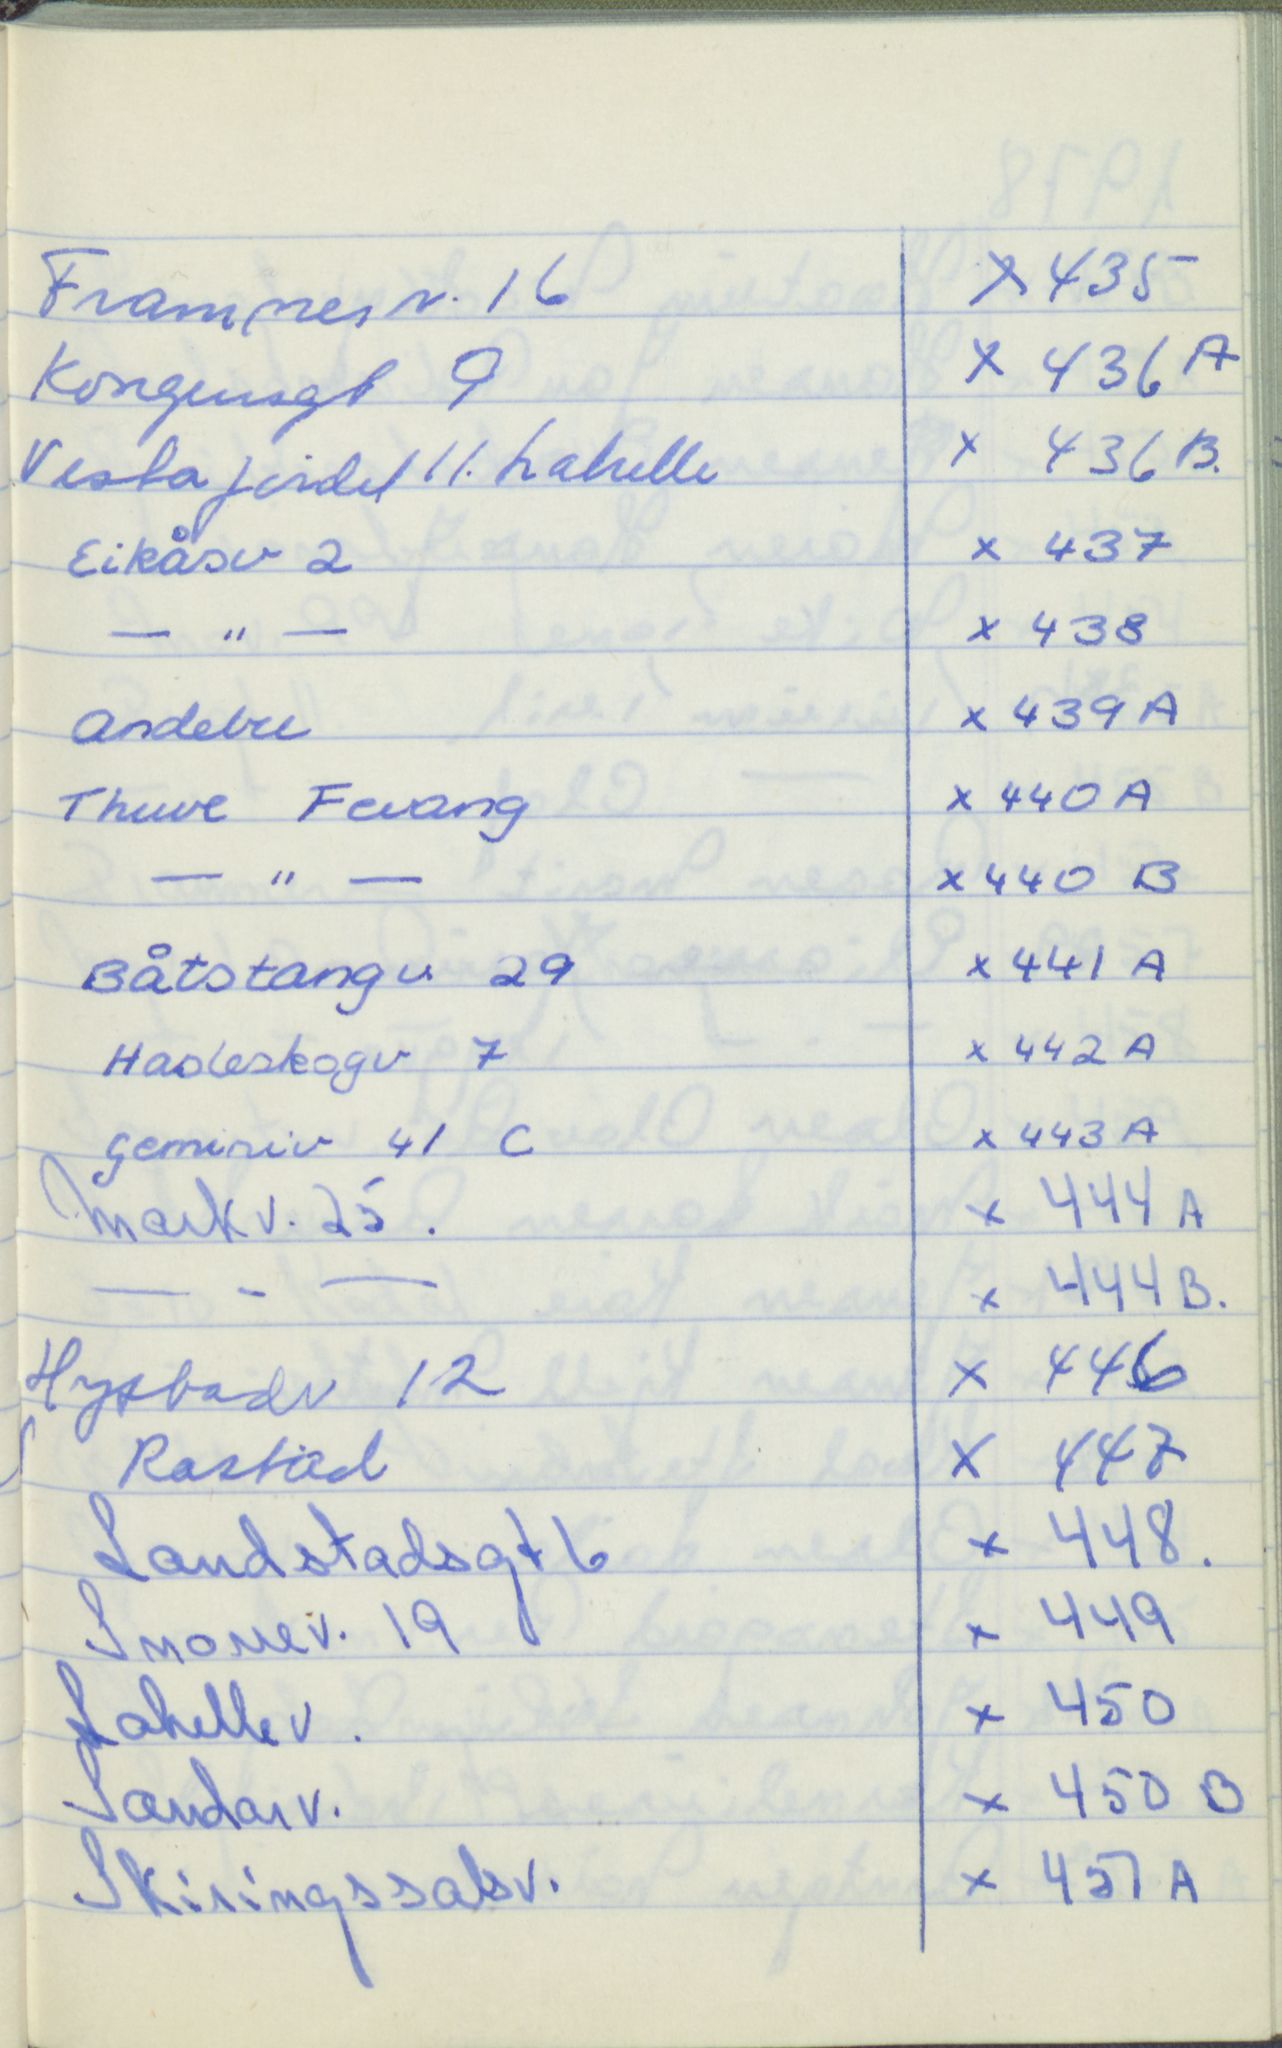 Framnesv. 16 x 435
Kongensgt 9 x 436 A
Vestafjordel 11. Lahelle x 436 B.
Eikåsv 2 x 437
— " — x 438
Andebu x 439 A
Thuve Fevang x 440 A
— " — x 440 B
Båtstangv. 29 x 441 A
Hasleskogv 7 x 442 A
Geminiv 41 C x 443 A
Markv. 25. x 444 A
— - — x 444 B.
Hystadv 12 x 446
Rastad x 447
Landstadsgt 6 x 448.
Snorrev. 19 x 449
Lahellev. x 450
Sandarv. x 450 B
Skiringssalsv. x 451 A